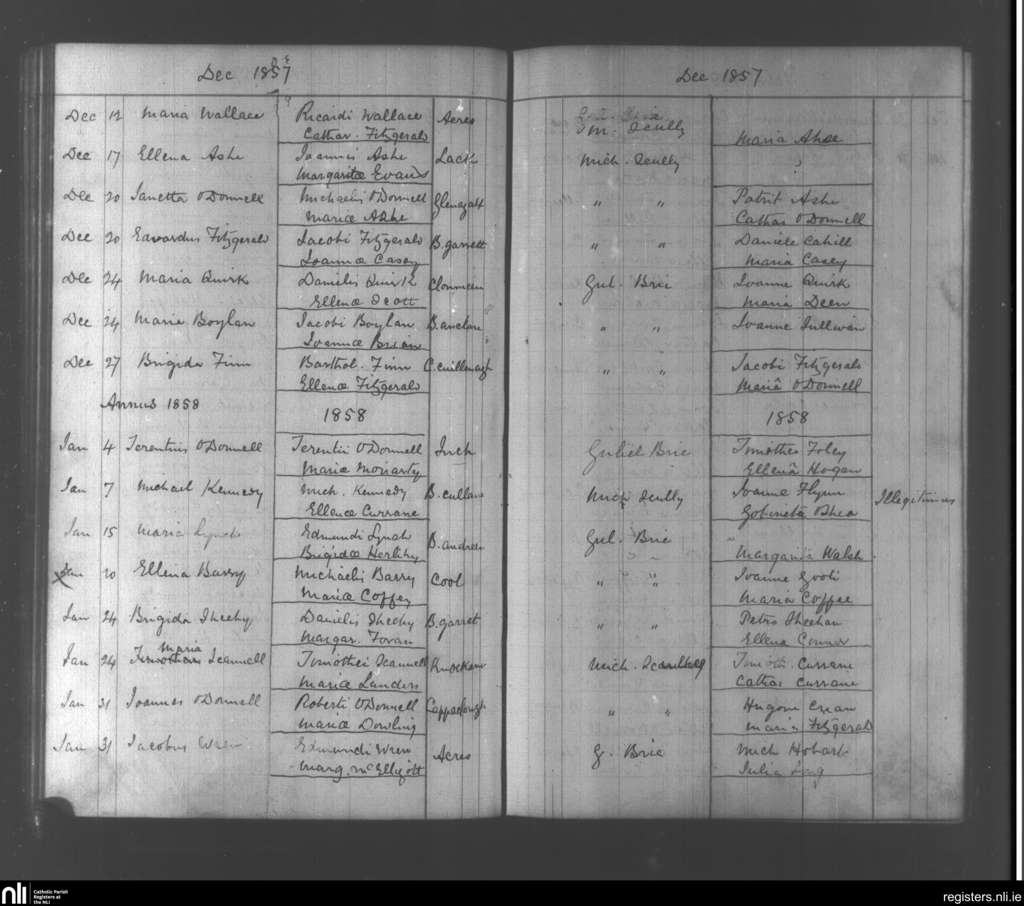 Dec 1857
Dec 1857
Dec 12 Maria Wallace Ricardi Wallace Acres M. Scully
Cathar. Fitzgerald Maria Ahse
Dec 17 Ellena Ashe Joannis Ashe Lack Mich. Scully
Margaritæ Evans
Dec 20 Janetta O'Donnell Michaelis O'Donnell Glenagalt " " Patrit Ashe
Mariæ Ashe Cathar O'Donnell
Dec 20 Edvardus Fitzgerald Jacobi Fitzgerald B.garrett " " Daniele Cahill
Joannæ Casey Maria Casey
Dec 24 Maria Quirk Danielis Quirk Clonmein Gul. Brie Joanne Quirk
Ellenæ Scott Maria Deen
Dec 24 Maria Boylan Jacobi Boylan B.anclan " " Joanne Sullivan
Joannæ Brian
Dec 27 Brigida Finn Barthol. Finn C.cuillenagh " " Jacobi Fitzgerald
Ellenæ Fitzgerald Mariâ O'Donnell
Annus 1858 1858 1858
Jan 4 Terentius O'Donnell Terentii O'Donnell Inch Guliel Brie Timotheo Foley
Mariæ Moriarty Ellenâ Hogan
Jan 7 Michael Kennedy Mich. Kennedy B.cullane Mich Scully Joanne Flynn Illegitimus
Ellenæ Currane Gobineta Shea
Jan 15 Maria Lynch Edmundi Lynch B.andreen Gul. Brie "
Brigidæ Herlihy Margarita Walsh
Jan 20 Ellena Barry Michaelis Barry Cool " " Joanne
Mariæ Coffey Maria Coffee
Jan 24 Brigida Sheehy Danielis Sheehy B.garret " " Petro Sheehan
Margar. Fovan Ellena Connor
Maria
Jan 24 Timotheus Scannell Timothei Scannell Knockane Mich. Timoth. Currane
Mariæ Landers Cathar Currane
Jan 31 Joannes O'Donnell Roberti O'Donnell Cappaclough " " Hugone Crean
Mariæ Dowling Maria Fitzgerald
Jan 31 Jacobus Wren Edmundi Wren Acres G. Brie Mich Hobart
Marg. McElligott Julia Long
nli
Catholic Parish
Registers at
the NLI
registers.nli.ie